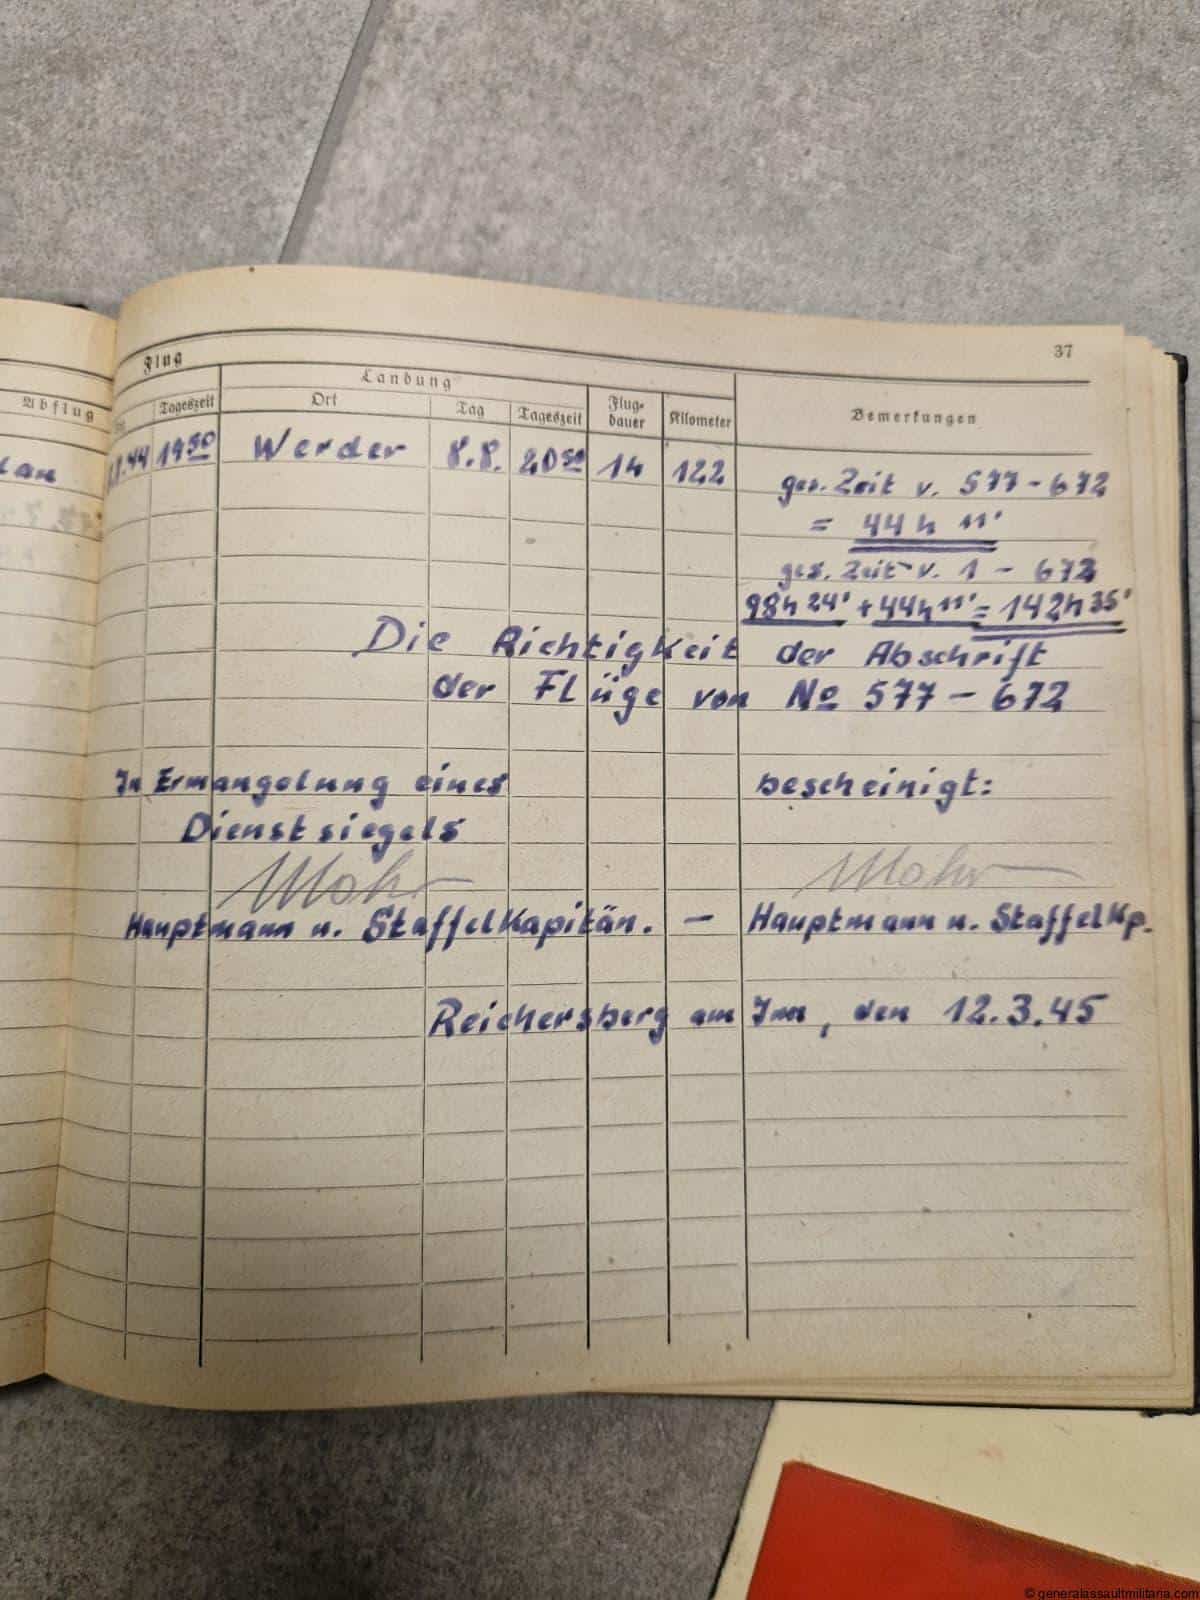 37
Flug
Landung
Abflug
Tageszeit
Ort
Tag
Tageszeit
Flug-
dauer
Kilometer
Bemerkungen
8.44 19 50 Werder 8.8. 20 50 14 122
ges. Zeit v. 577 - 672
= 44 h 11'
ges. Zeit v. 1 - 672
98h 24' + 44h 11' = 142h 35'
Die Richtigkeit der Abschrift
der Flüge von No 577 - 672
In Ermangelung eines bescheinigt:
Dienstsiegels
Mohr Mohr
Hauptmann u. Staffelkapitän. - Hauptmann u. Staffelkp.
Reichersberg am Inn, den 12.3.45
© generalassaultmilitaria.com